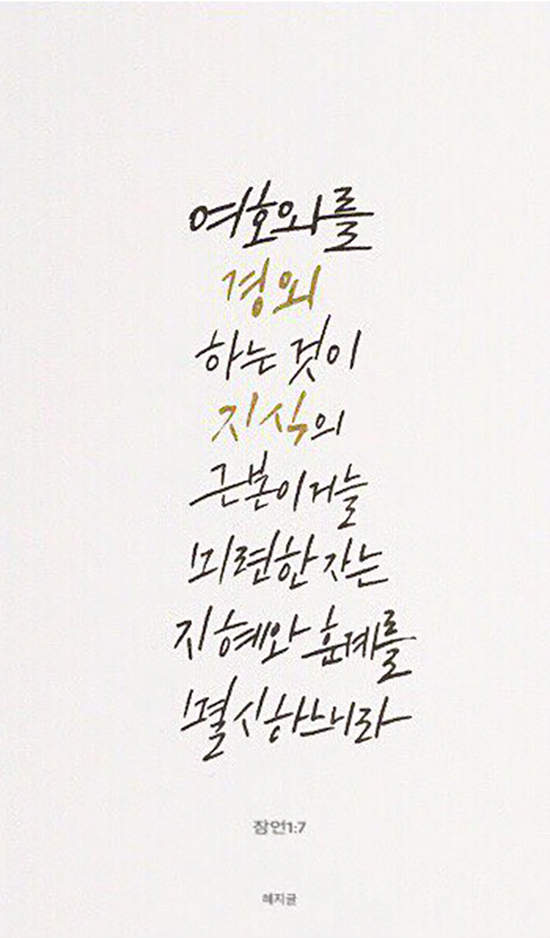 여호와를
경외
하는 것이
지식의
근본이거늘
미련한 자는
지혜와 훈계를
멸시하느니라
잠언1:7
혜지글